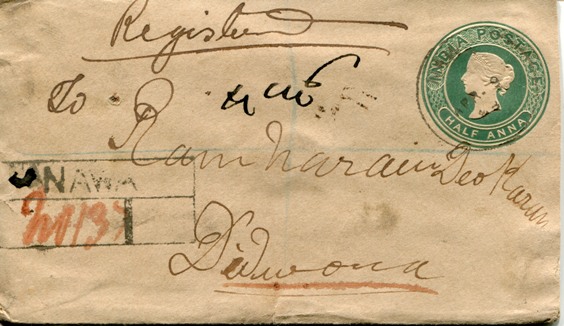 Registered
INDIA POSTAGE
HALF ANNA
To
Ram Narain Deo Karan
NAWA
No 137
Didwana